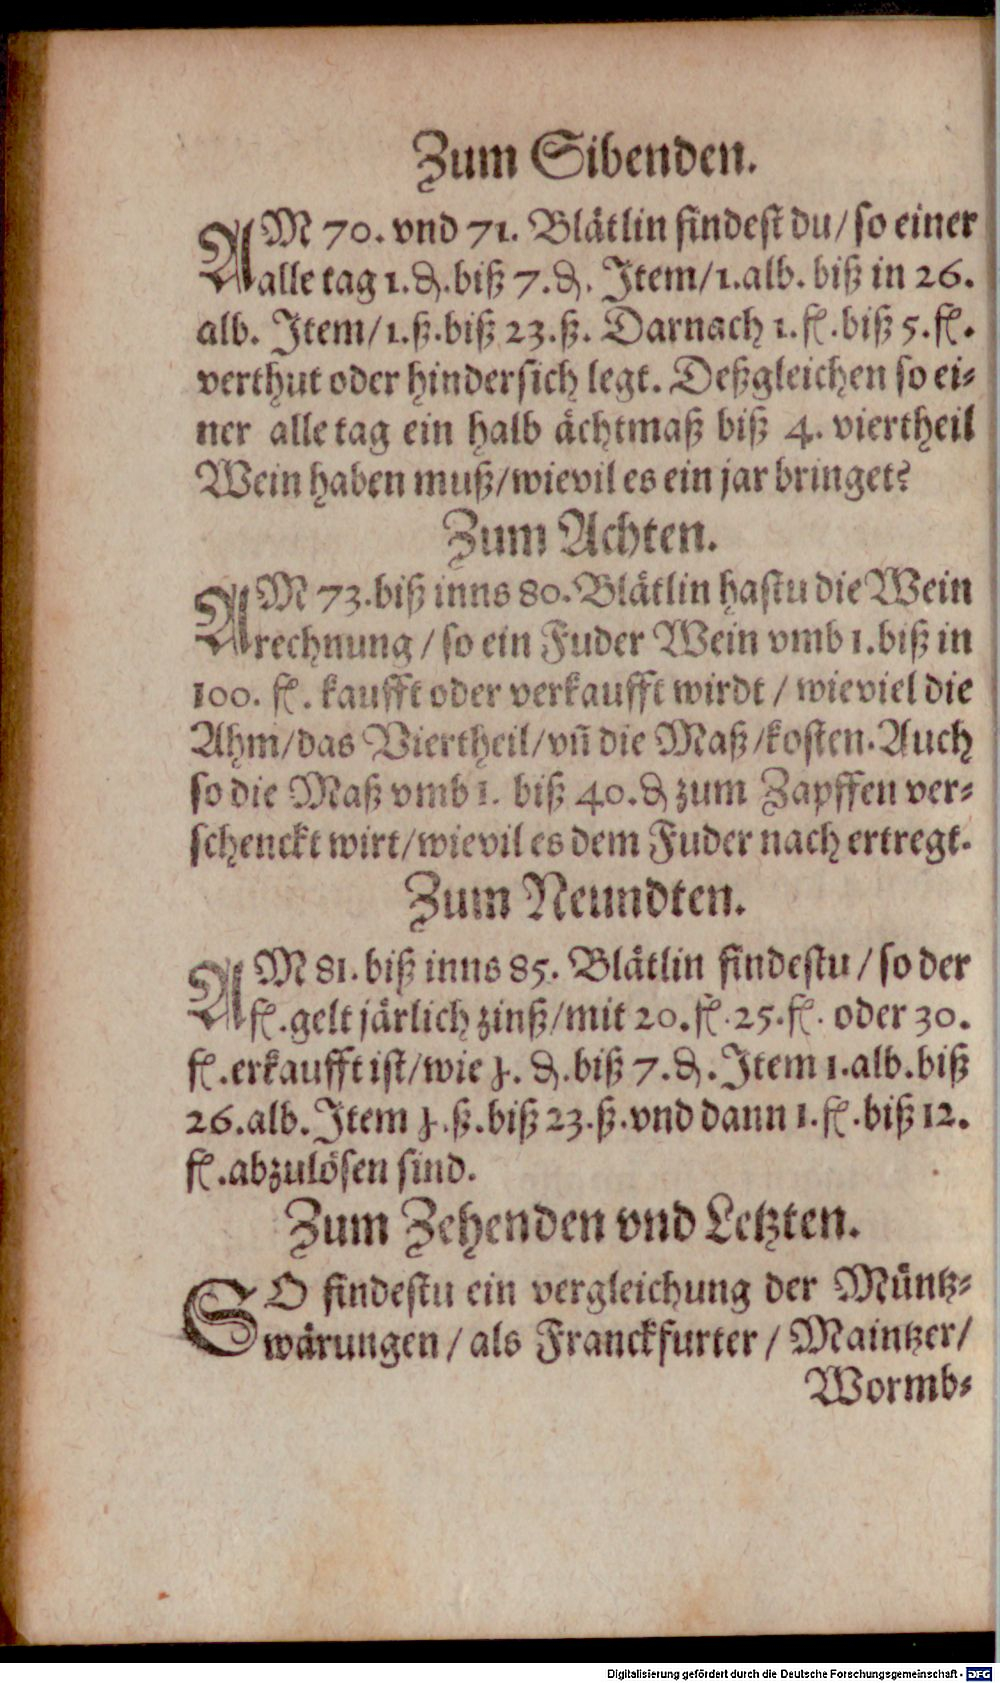 Zum Sibenden.
AM 70. vnd 71. Blätlin findest du/ so einer
alle tag 1. ₰. biß 7. ₰. Item/ 1. alb. biß in 26.
alb. Item/ 1. ß. biß 23. ß. Darnach 1. fl. biß 5. fl.
verthut oder hindersich legt. Deßgleichen so ei-
ner alle tag ein halb ächtmaß biß 4. viertheil
Wein haben muß/ wievil es ein jar bringet?
Zum Achten.
AM 73. biß inns 80. Blätlin hastu die Wein
rechnung / so ein Fuder Wein vmb 1. biß in
100. fl. kaufft oder verkaufft wirdt / wieviel die
Ahm/ das Viertheil/ vñ die Maß/ kosten. Auch
so die Maß vmb 1. biß 40. ₰ zum Zapffen ver-
schenckt wirt/ wievil es dem Fuder nach ertregt.
Zum Neundten.
AM 81. biß inns 85. Blätlin findestu / so der
fl. gelt järlich zinß/ mit 20. fl. 25. fl. oder 30.
fl. erkaufft ist/ wie . ₰. biß 7. ₰. Item 1. alb. biß
26. alb. Item . ß. biß 23. ß. vnd dann 1. fl. biß 12.
fl. abzulösen sind.
Zum Zehenden vnd Letzten.
SO findestu ein vergleichung der Müntz-
wärungen / als Franckfurter / Maintzer/
Wormb-
Digitalisierung gefördert durch die Deutsche Forschungsgemeinschaft - DFG